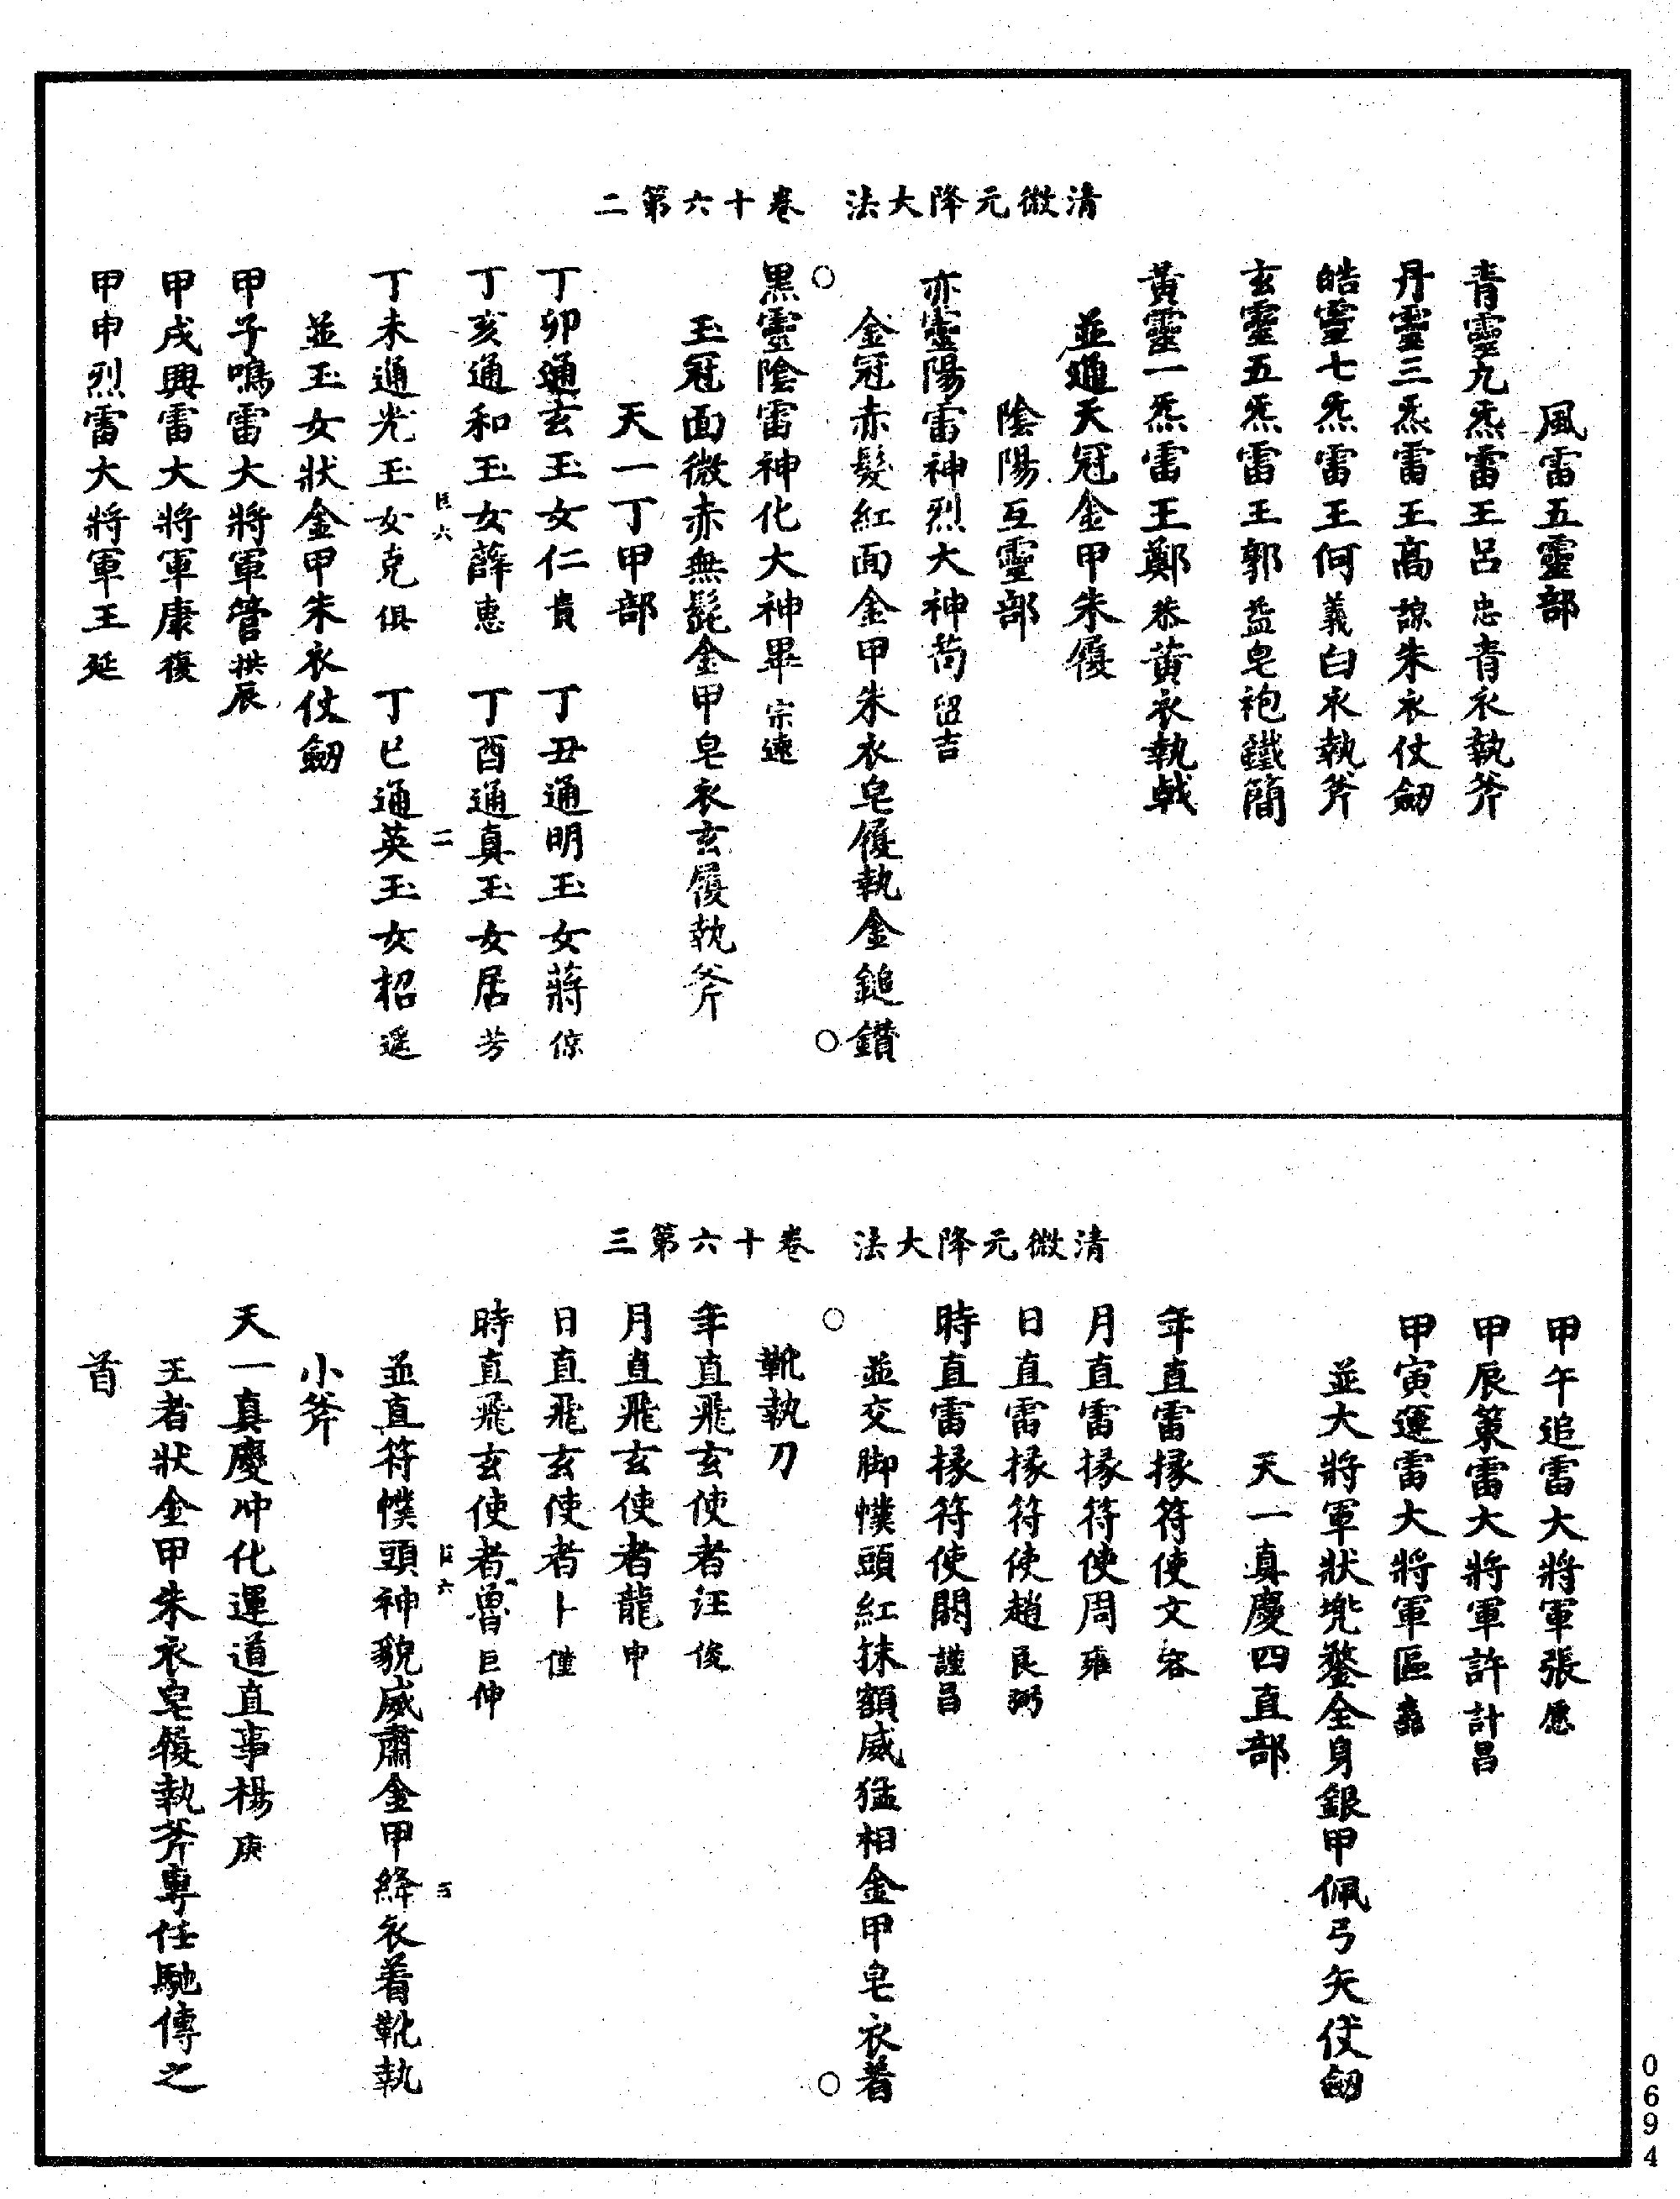 清微元降大法　卷十六第二
風雷五靈部
青靈九炁雷王呂忠青衣執斧
丹靈三炁雷王高諒朱衣仗劒
皓靈七炁雷王何義白衣執斧
玄靈五炁雷王郭益皂袍鐵簡
黃靈一炁雷王鄭恭黃衣執戟
並通天冠金甲朱履
陰陽互靈部
赤靈陽雷神烈大神苟留吉
金冠赤髮紅面金甲朱衣皂履執金鎚鑽
黑靈陰雷神化大神畢宗遠
玉冠面微赤無髭金甲皂衣玄履執斧
天一丁甲部
丁卯通玄玉女仁貴　丁丑通明玉女蔣倞
丁亥通和玉女薛惠　丁酉通真玉女居芳
臣六　二
丁未通光玉女克俱　丁巳通英玉女柖遥
並玉女狀金甲朱衣仗劒
甲子鳴雷大將軍管拱辰
甲戌興雷大將軍康復
甲申烈雷大將軍王延
清微元降大法　卷十六第三
甲午追雷大將軍張愿
甲辰策雷大將軍許計昌
甲寅運雷大將軍區
並大將軍狀兠鍪全身銀甲佩弓矢仗劒
天一真慶四直部
年直雷掾符使文容
月直雷掾符使周雍
日直雷掾符使趙良弼
時直雷掾符使閻謹昌
並交脚幞頭紅抹額威猛相金甲皂衣着
靴執刀
年直飛玄使者汪俊
月直飛玄使者龍申
日直飛玄使者卜僅
時直飛玄使者曾巨伸
臣六　三
並直符幞頭神貌威肅金甲絳衣着靴執
小斧
天一真慶冲化運道直事楊庚
王者狀金甲朱衣皂履執斧專任馳傳之
首
0694